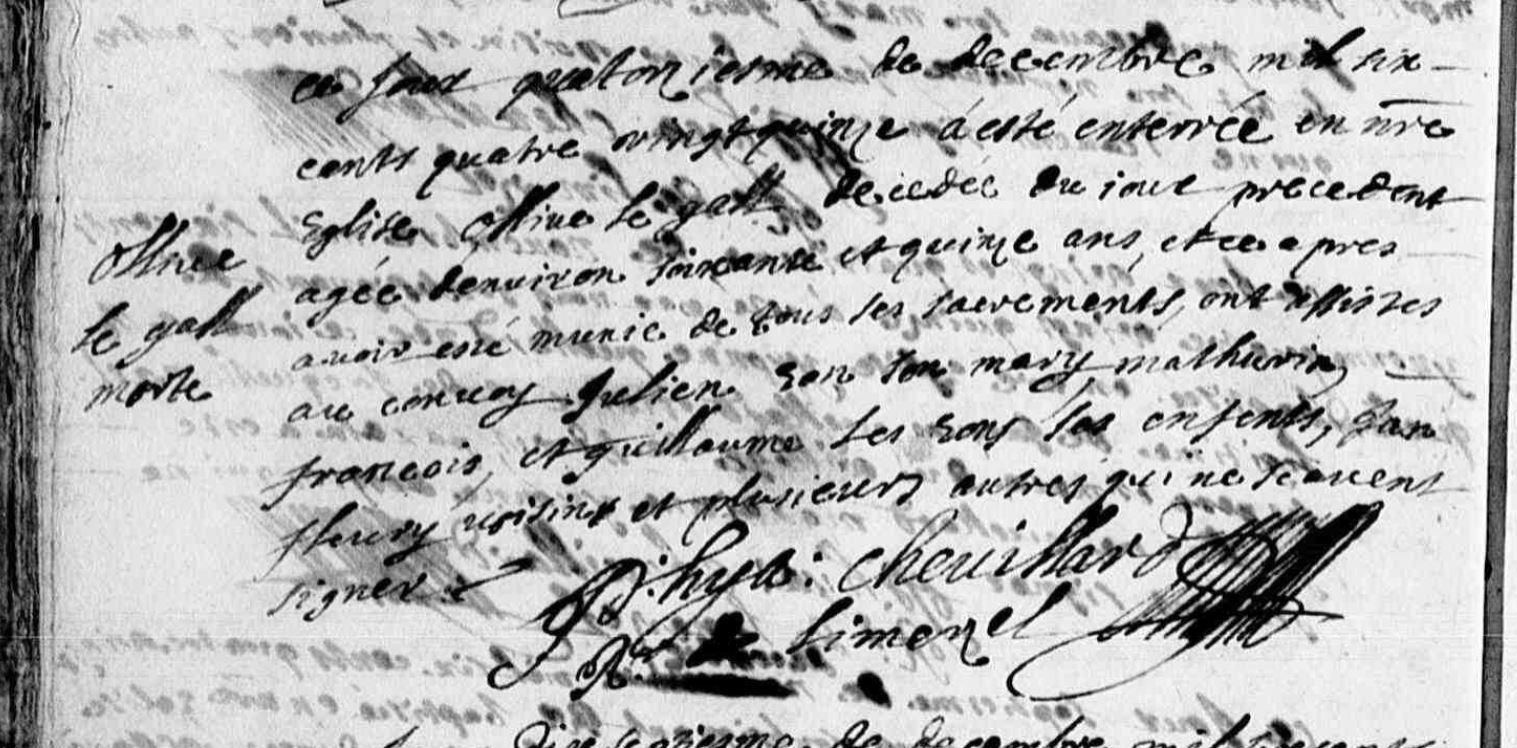 ce jour quatorziesme de decembre mil six
cents quatre vingt quinze a esté enterrée en nre
Eglise Ollive le gall decedée du iour precedent
agée denuiron soixante et quinze ans, et ce apres
Ollive
auoir esté munie de tous ses sacrements, ont assistes
le gall
au conuoy Julien son mary mathurin
morte
francois, et guillaume les ses enfents, Jan
fleury uoisins et plusieurs autres qui ne scauent
signer
P: hya: cheuillard
Rr de Limerzel
de decembre mil